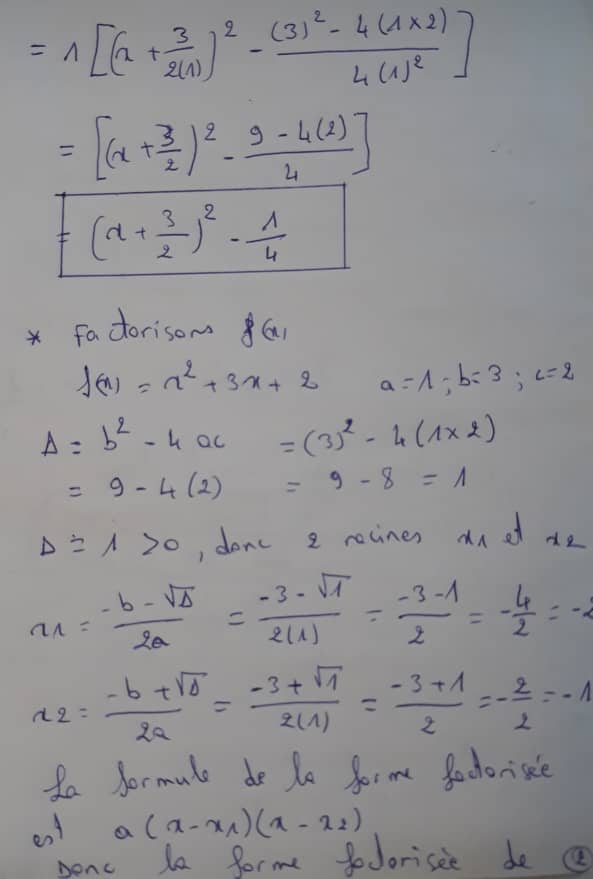 = 1 [(x + 3/2(1))² - (3)² - 4(1×2)/4(1)²]
= [(x + 3/2)² - 9 - 4(2)/4]
= (x + 3/2)² - 1/4
* Factorisons f(x)
f(x) = x² + 3x + 2 a=1 ; b=3 ; c=2
Δ = b² - 4ac = (3)² - 4(1×2)
= 9 - 4(2) = 9 - 8 = 1
Δ = 1 > 0, donc 2 racines x1 et x2
x1 = -b - √Δ/2a = -3 - √1/2(1) = -3-1/2 = -4/2 = -2
x2 = -b + √Δ/2a = -3 + √1/2(1) = -3+1/2 = -2/2 = -1
La formule de la forme factorisée
est a(x-x1)(x-x2)
Donc la forme factorisée de ②